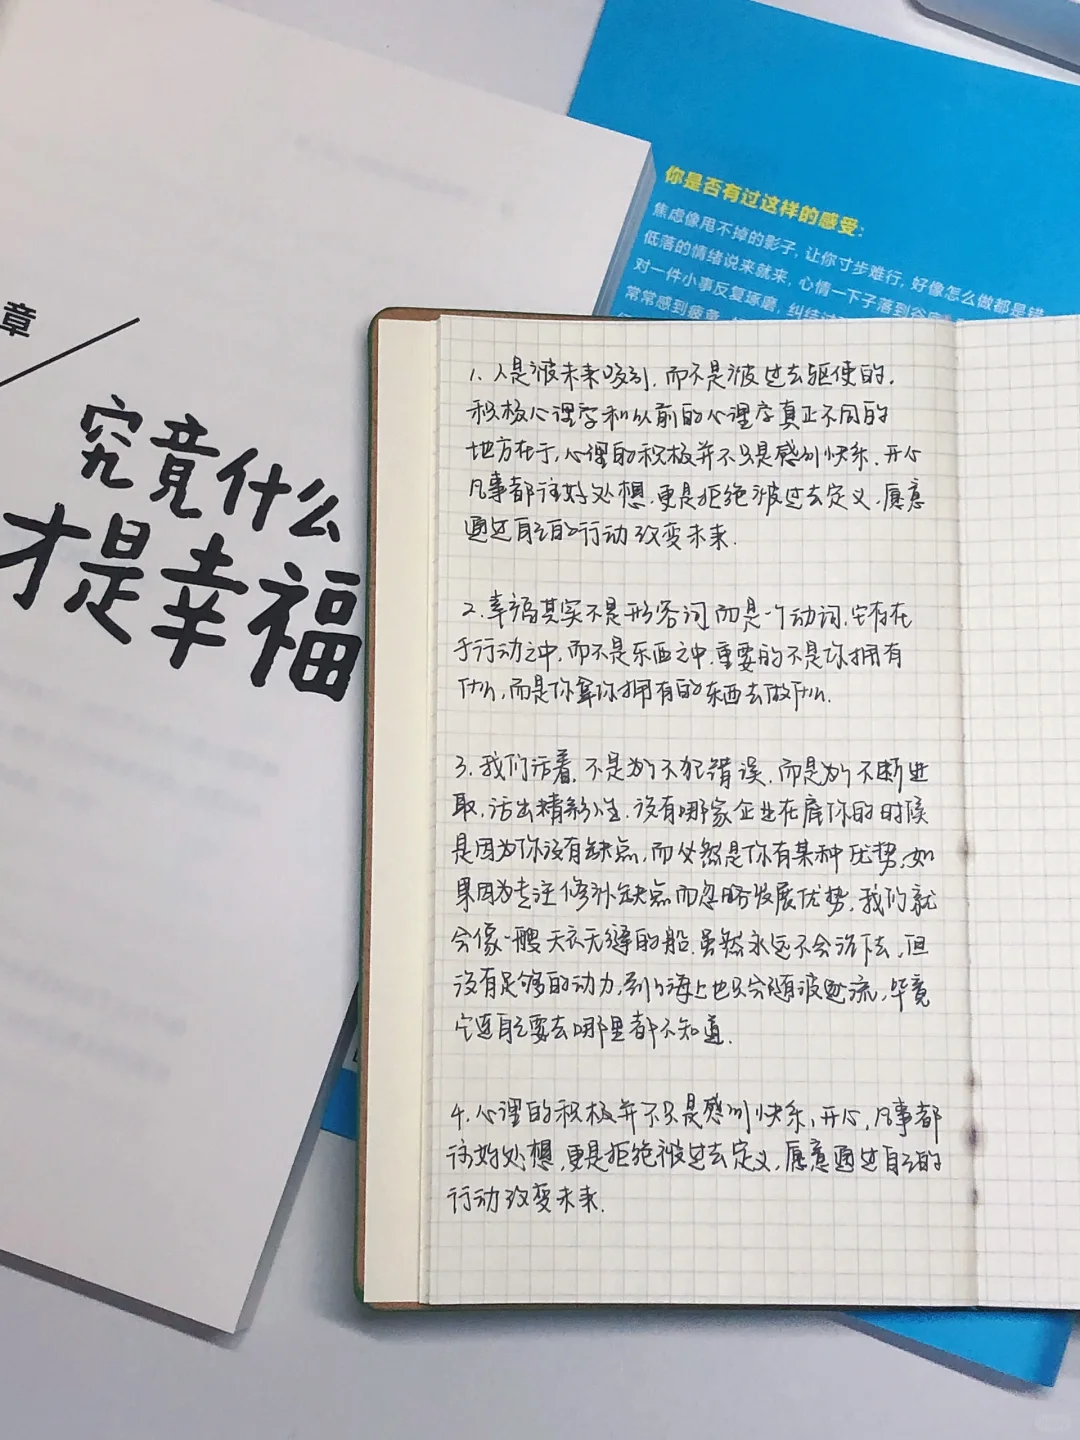 章
究竟什么
才是幸福
你是否有过这样的感受：
焦虑像甩不掉的影子，让你寸步难行，好像怎么做都是错
低落的情绪说来就来，心情一下子落到谷底
对一件小事反复琢磨，纠结
常常感到疲惫
1、人是被未来吸引，而不是被过去驱使的，
积极心理学和以前的心理学真正不同的
地方在于，心理的积极并不只是感到快乐、开心
凡事都往好处想，更是拒绝被过去定义，愿意
通过自己的行动改变未来．
2．幸福其实不是形容词而是一个动词，它存在
于行动之中，而不是东西之中．重要的不是你拥有
什么，而是你拿你拥有的东西去做什么．
3．我们活着，不是为了不犯错误，而是为了不断进
取，活出精彩人生．没有哪家企业在雇你的时候
是因为你没有缺点，而必然是你有某种优势，如
果因为专注修补缺点而忽略发展优势，我们就
会像一艘天衣无缝的船．虽然永远不会沉下去，但
没有足够的动力，到了海上也只会随波逐流，毕竟
它连自己要去哪里都不知道．
4．心理的积极并不只是感到快乐，开心，凡事都
往好处想，更是拒绝被过去定义，愿意通过自己的
行动改变未来．